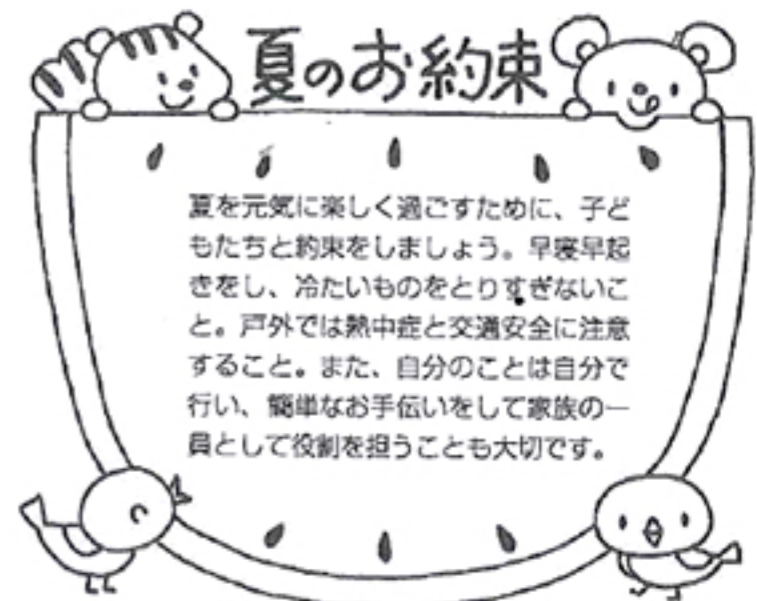 夏のお約束
夏を元気に楽しく過ごすために、子ど
もたちと約束をしましょう。早寝早起
きをし、冷たいものをとりすぎないこ
と。戸外では熱中症と交通安全に注意
すること。また、自分のことは自分で
行い、簡単なお手伝いをして家族の一
員として役割を担うことも大切です。